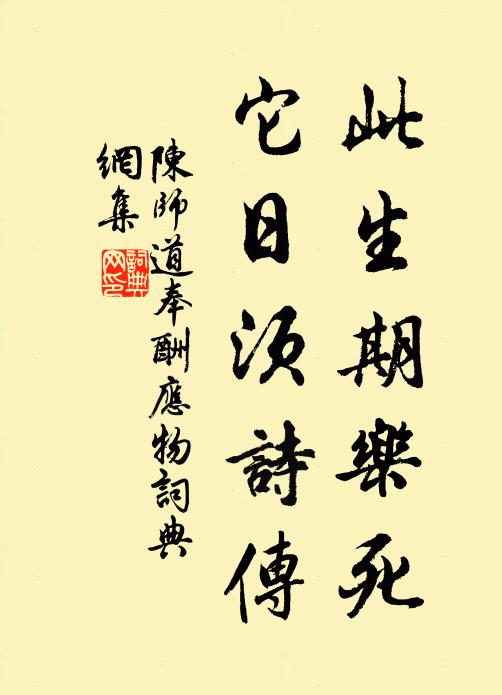 此生期樂死
它日須詩傳
陳師道奉酬應物詞典
網集
詞典
网印